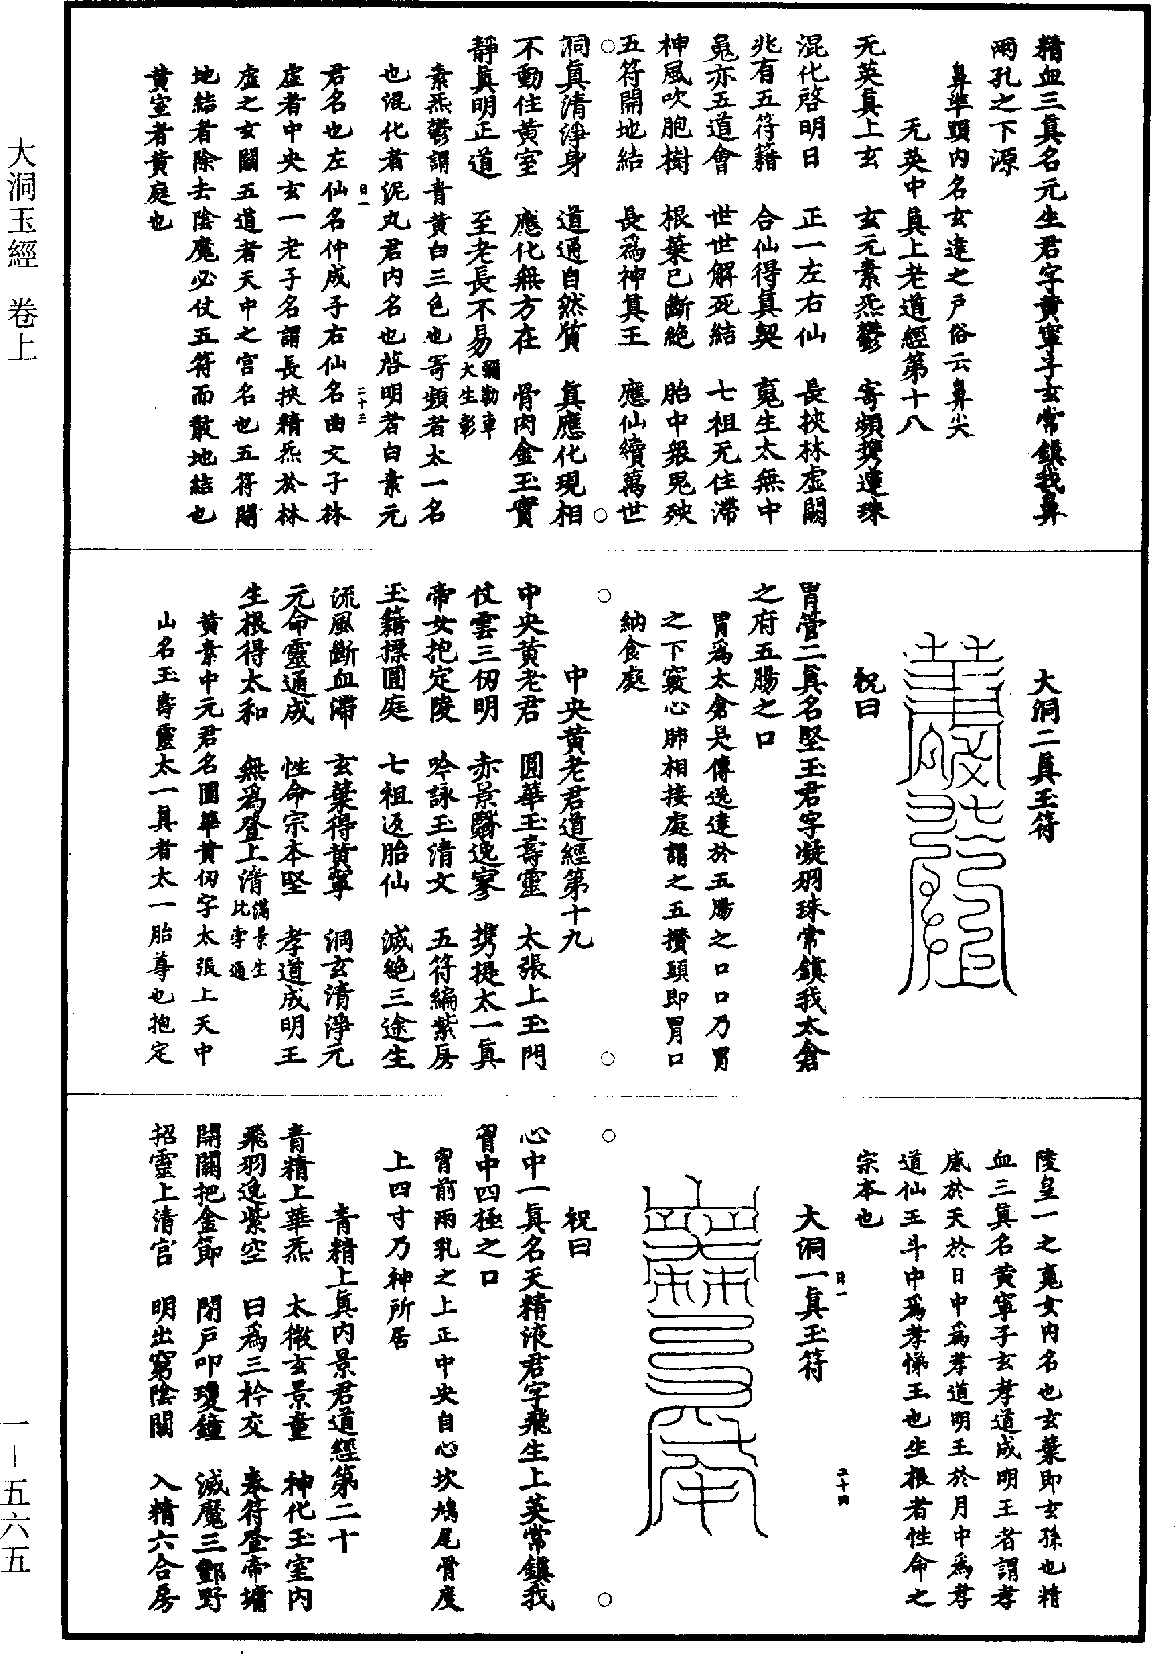 大洞玉經　卷上
一－五六五
精血三眞名元生君字黄寧子玄常鎮我鼻
兩孔之下源
鼻準頭内名玄達之戶俗云鼻尖
无英中眞上老道經第十八
无英眞上玄　玄元素炁鬱　寄頻攜連珠
混化啓明日　正一左右仙　長挾林虛闕
兆有五符籍　合仙得眞契　寃生太無中
寃亦五道會　世世解死結　七祖无住滯
神風吹胞樹　根葉已斷絶　胎中衆鬼殃
五符開地結　長爲神眞王　應仙續萬世
洞眞清淨身　道通自然質　眞應化現相
不動住黄室　應化無方在　骨肉金玉實
靜眞明正道　至老長不易彌勒車大生彰
素炁鬱謂青黄白三色也寄頻若太一名
也混化者泥丸君内名也啓明者白素元
君名也左仙名仲成子右仙名曲文子林
虛者中央玄一老子名謂長挾精炁於林
虛之玄闕五道者天中之宫名也五符開
地結者除去陰魔必仗五符而散地結也
黄室者黄庭也
日一
二十三
大洞二眞玉符
祝曰
胃管二眞名堅玉君字凝羽珠常鎮我太倉
之府五腸之口
胃爲太倉是傳送達於五腸之口口乃胃
之下竅心肺相接處謂之五攢頭即胃口
納食處
中央黄老君道經第十九
中央黄老君　圓華玉壽靈　太張上玉門
仗雲三仞明　赤景騎逸寥　携提太一眞
帝女抱定陵　吟詠玉清文　五符編紫房
玉籍標圓庭　七祖返胎仙　滅絶三途生
流風斷血滯　玄葉得黄寧　洞玄清淨元
元命靈通成　性命宗本堅　孝道成明王
生根得太和　無爲登上清滿景生比李通
黄素中元君名圓華黄仞字太張上天中
山名玉壽靈太一眞者太一胎尊也抱定
陵皇一之寃女内名也玄葉即玄孫也精
血三眞名黄寧子玄孝道成明王者謂孝
感於天於日中爲孝道明王於月中爲孝
道仙王斗中爲孝悌王也生根者性命之
宗本也
大洞一眞玉符
日一
二十四
祝曰
心中一眞名天精液君字飛生上英常鎮我
胷中四極之口
胷前兩乳之上正中央自心坎鳩尾骨度
上四寸乃神所居
青精上眞内景君道經第二十
青精上華炁　太微玄景童　神化玉室内
飛羽逸紫空　日爲三杵交　奉符登帝墉
開關把金節　閉戶叩瓊鐘　滅魔三酆野
招靈上清宫　明出窮陰關　入精六合房